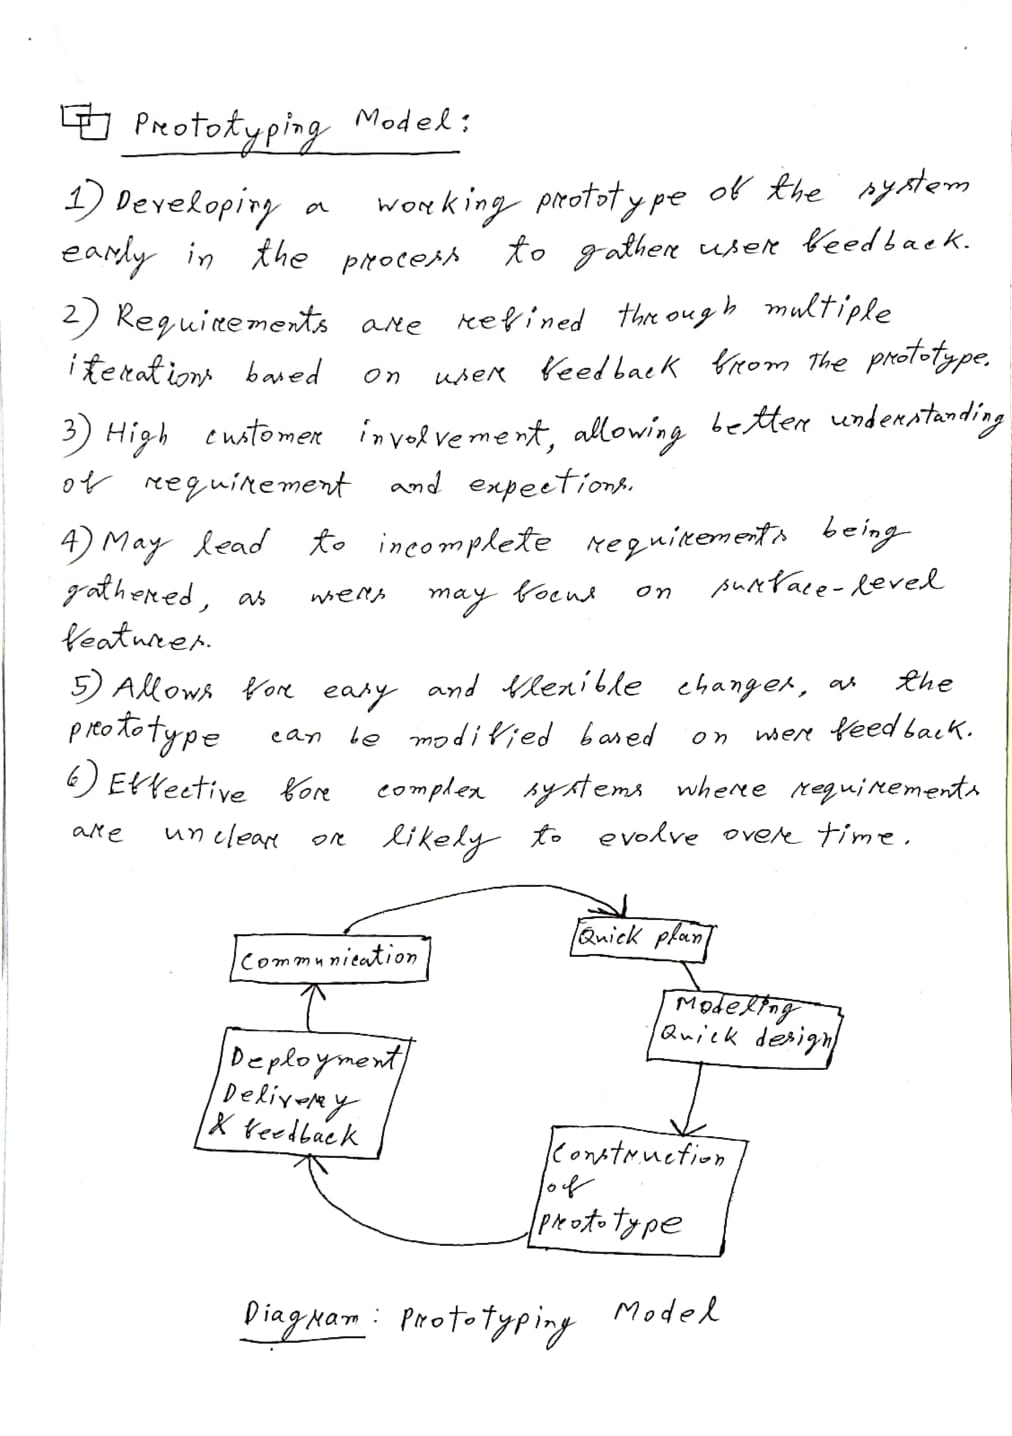 Prototyping Model:
1) Developing a working prototype of the system
early in the process to gather user feedback.
2) Requirements are refined through multiple
iterations based on user feedback from the prototype.
3) High customer involvement, allowing better understanding
of requirement and expections.
4) May lead to incomplete requirements being
gathered, as users may focus on surface-level
features.
5) Allows for easy and flexible changes, as the
prototype can be modified based on user feedback.
6) Effective for complex systems where requirements
are unclear or likely to evolve over time.
Communication
Quick plan
Modeling
Quick design
Construction
of
prototype
Deployment
Delivery
& feedback
Diagram: Prototyping Model